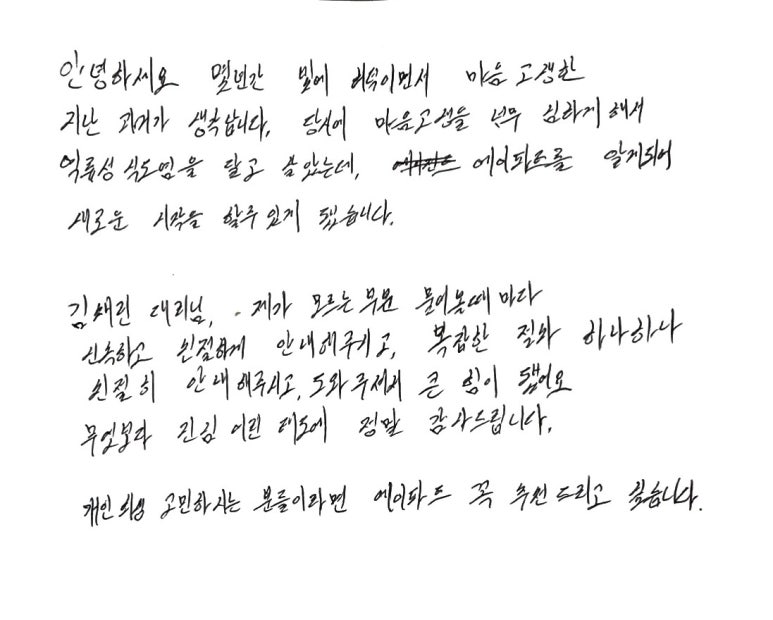 안녕하세요 몇년간 빚에 허덕이면서 마음 고생한
지난 과거가 생각납니다. 당시에 마음고생을 너무 심하게 해서
역류성 식도염을 달고 살았는데, 에이파트를 알게되어
새로운 시작을 할수 있게 됐습니다.
김채린 대리님, 제가 모르는 부분 물어볼때 마다
신속하고 친절하게 안내해주시고, 복잡한 절차 하나하나
친절히 안내해주시고, 도와주셔서 큰 힘이 됐어요
무엇보다 진심 어린 태도에 정말 감사드립니다.
개인회생 고민하시는 분들이라면 에이파트 꼭 추천드리고 싶습니다.